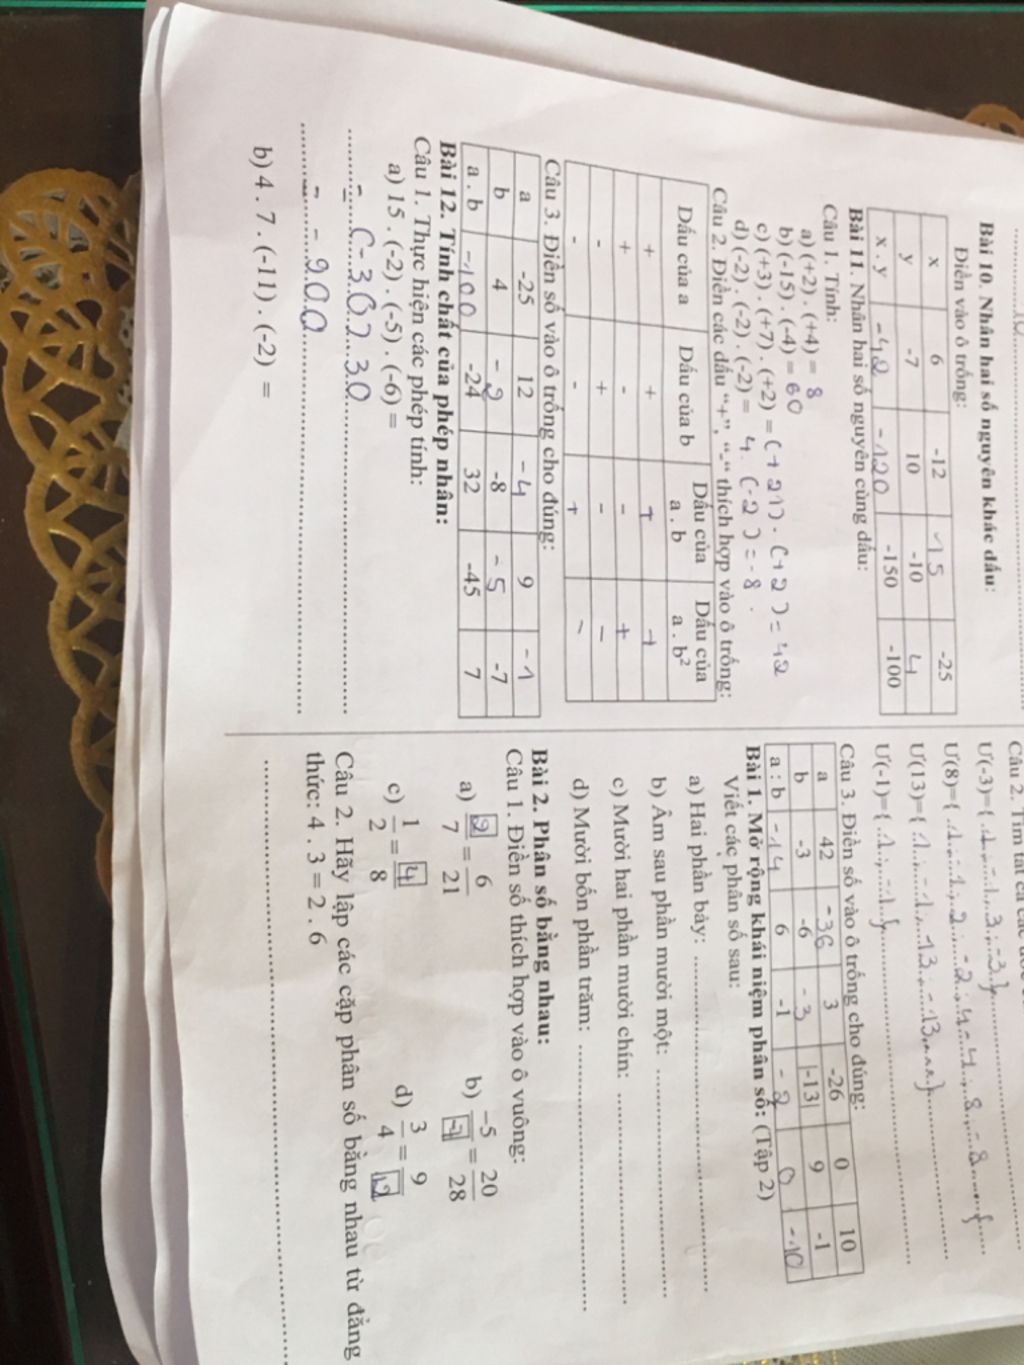 Bài 10. Nhân hai số nguyên khác dấu:
Điền vào ô trống:
x 6 -12 -15 -25
y -7 10 -10 4
x . y -42 -120 -150 -100
Bài 11. Nhân hai số nguyên cùng dấu:
Câu 1. Tính:
a) (+2) . (+4) = 8
b) (-15) . (-4) = 60
c) (+3) . (+7) . (+2) = (+21) . (+2) = 42
d) (-2) . (-2) . (-2) = 4 . (-2) = -8 .
Câu 2. Điền các dấu “+”, “-“ thích hợp vào ô trống:
Dấu của a Dấu của b Dấu của a . b Dấu của a . b²
+ + + +
+ - - +
- + - -
- - + -
Câu 3. Điền số vào ô trống cho đúng:
a -25 12 -4 9 -1
b 4 -2 -8 -5 -7
a . b -100 -24 32 -45 7
Bài 12. Tính chất của phép nhân:
Câu 1. Thực hiện các phép tính:
a) 15 . (-2) . (-5) . (-6) =
= (-30) . 30
= -900
b) 4 . 7 . (-11) . (-2) =
Ư(-3)={ 1; -1; 3; -3 }
Ư(8)={ 1; -1; 2; -2; 4; -4; 8; -8 }
Ư(13)={ 1; -1; 13; -13 }
Ư(-1)={ 1; -1 }
Câu 3. Điền số vào ô trống cho đúng:
a 42 -36 3 -26 0 10
b -3 -6 -3 |-13| 9 -1
a : b -14 6 -1 -2 0 -10
Bài 1. Mở rộng khái niệm phân số: (Tập 2)
Viết các phân số sau:
a) Hai phần bảy:
b) Âm sau phần mười một:
c) Mười hai phần mười chín:
d) Mười bốn phần trăm:
Bài 2. Phân số bằng nhau:
Câu 1. Điền số thích hợp vào ô vuông:
a) 2/7 = 6/21 b) -5/-7 = 20/28
c) 1/2 = 4/8 d) 3/4 = 9/12
Câu 2. Hãy lập các cặp phân số bằng nhau từ đẳng
thức: 4 . 3 = 2 . 6